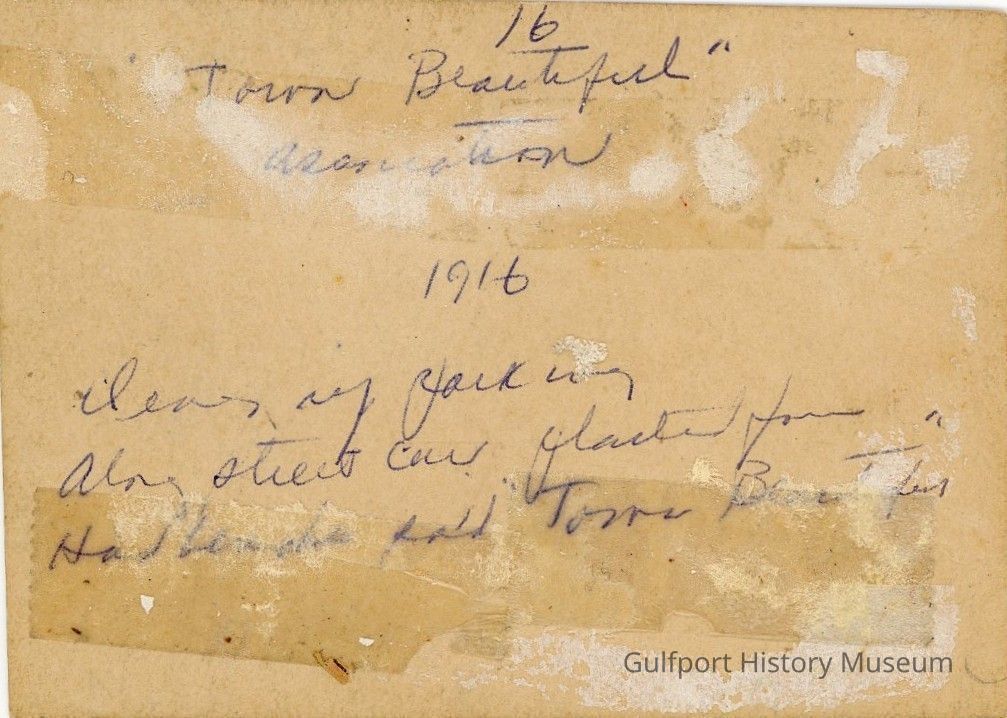 16
"Town Beautiful"
Association
1916
Cleaning parking
Along street car planted from
Had benches said "Town Beautiful"
Gulfport History Museum